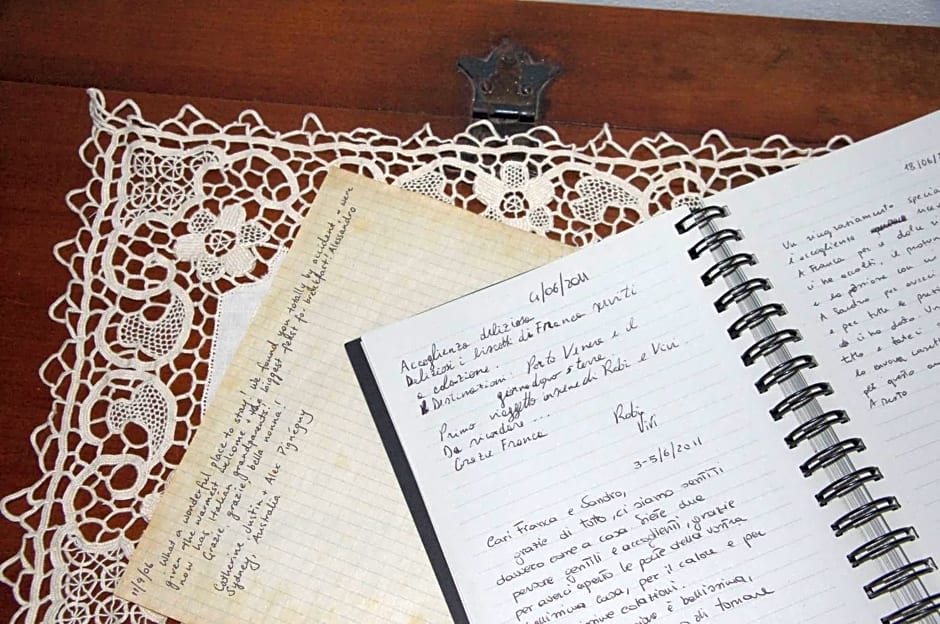 11/9/06
What a wonderful place to stay! We found you totally by accident & were
given the warmest welcome & the biggest feast for breakfast! Alessandro
now has Italian grandparents!
Grazie, grazie, bella nonna!!
Catherine, Justin & Alex Pignéguy
Sydney, Australia
4/06/2011
Accoglienza deliziosa
Deliziosi i biscotti di Franca serviti
a colazione.
Destinazioni: Porto Venere e il
giorno dopo 5 terre
Primo viaggetto insieme di Robi e Vivi
Da ricordare...
Grazie Franca
Robi
Vivi
3-5/6/2011
Cari Franca e Sandro,
grazie di tutto, ci siamo sentiti
davvero come a casa. Siete due
persone gentili e accoglienti, grazie
per averci aperto le porte della vostra
bellissima casa, per il calore e per
colazioni.
è bellissima,
di tornare
18/06/
Un ringraziamento special
è accogliente
A Franca per il
ci ha accolti, il
e la passione con
A Sandro per averci
e per tutte le
ci ha dato. Un
tito e fate i
la nuova casetta
per questo
A presto